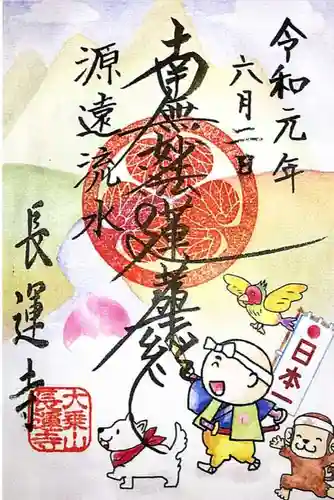 令和元年
六月一日
南無妙法蓮華経
源遠流水
長運寺
日本一
大乗山
長運寺